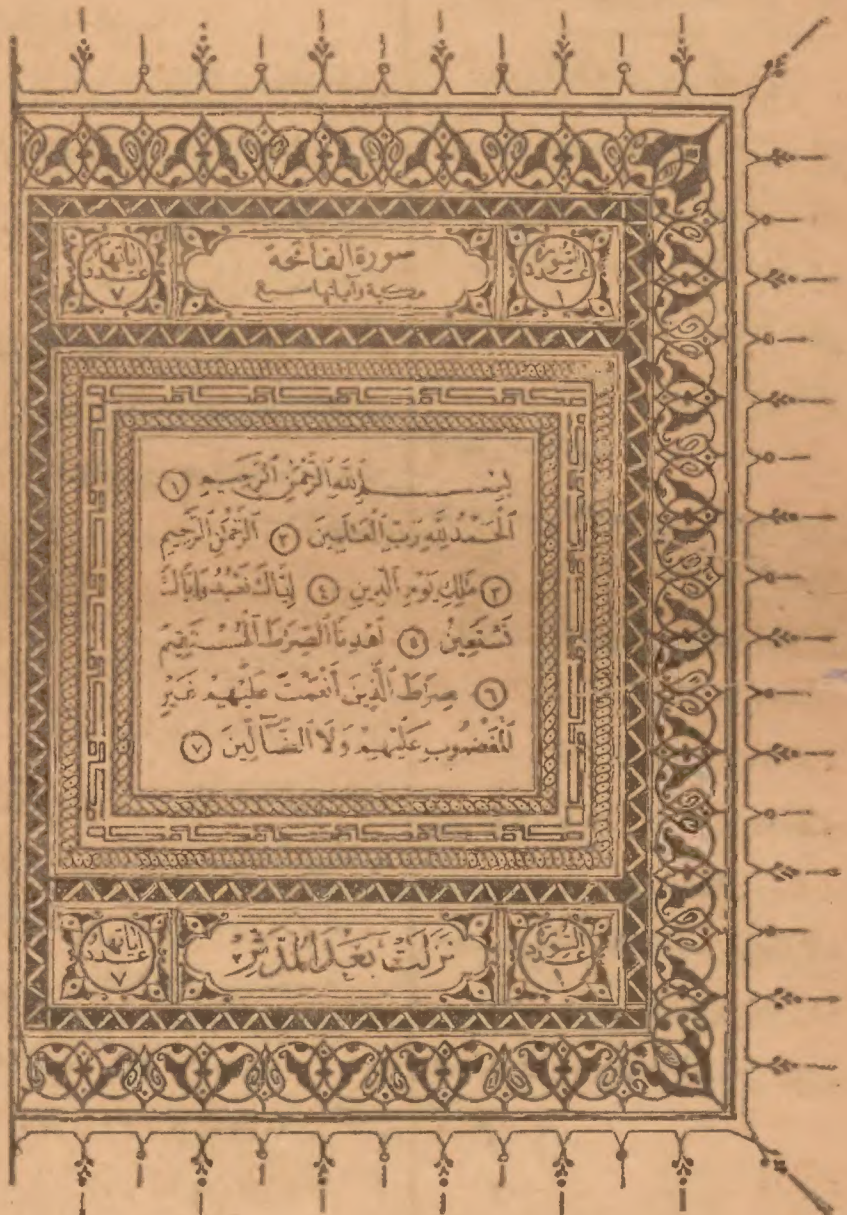 السورة
عدد
١
سورة الفاتحة
مكية وآياتها سبع
آياتها
عدد
٧
بِسْمِ ٱللَّهِ ٱلرَّحْمَٰنِ ٱلرَّحِيمِ ١
ٱلْحَمْدُ لِلَّهِ رَبِّ ٱلْعَٰلَمِينَ ٢ ٱلرَّحْمَٰنِ ٱلرَّحِيمِ
٣ مَٰلِكِ يَوْمِ ٱلدِّينِ ٤ إِيَّاكَ نَعْبُدُ وَإِيَّاكَ
نَسْتَعِينُ ٥ ٱهْدِنَا ٱلصِّرَٰطَ ٱلْمُسْتَقِيمَ
٦ صِرَٰطَ ٱلَّذِينَ أَنْعَمْتَ عَلَيْهِمْ غَيْرِ
ٱلْمَغْضُوبِ عَلَيْهِمْ وَلَا ٱلضَّآلِّينَ ٧
السورة
عدد
١
نَزَلَتْ بَعْدَ الْمُدَّثِّرِ
آياتها
عدد
٧